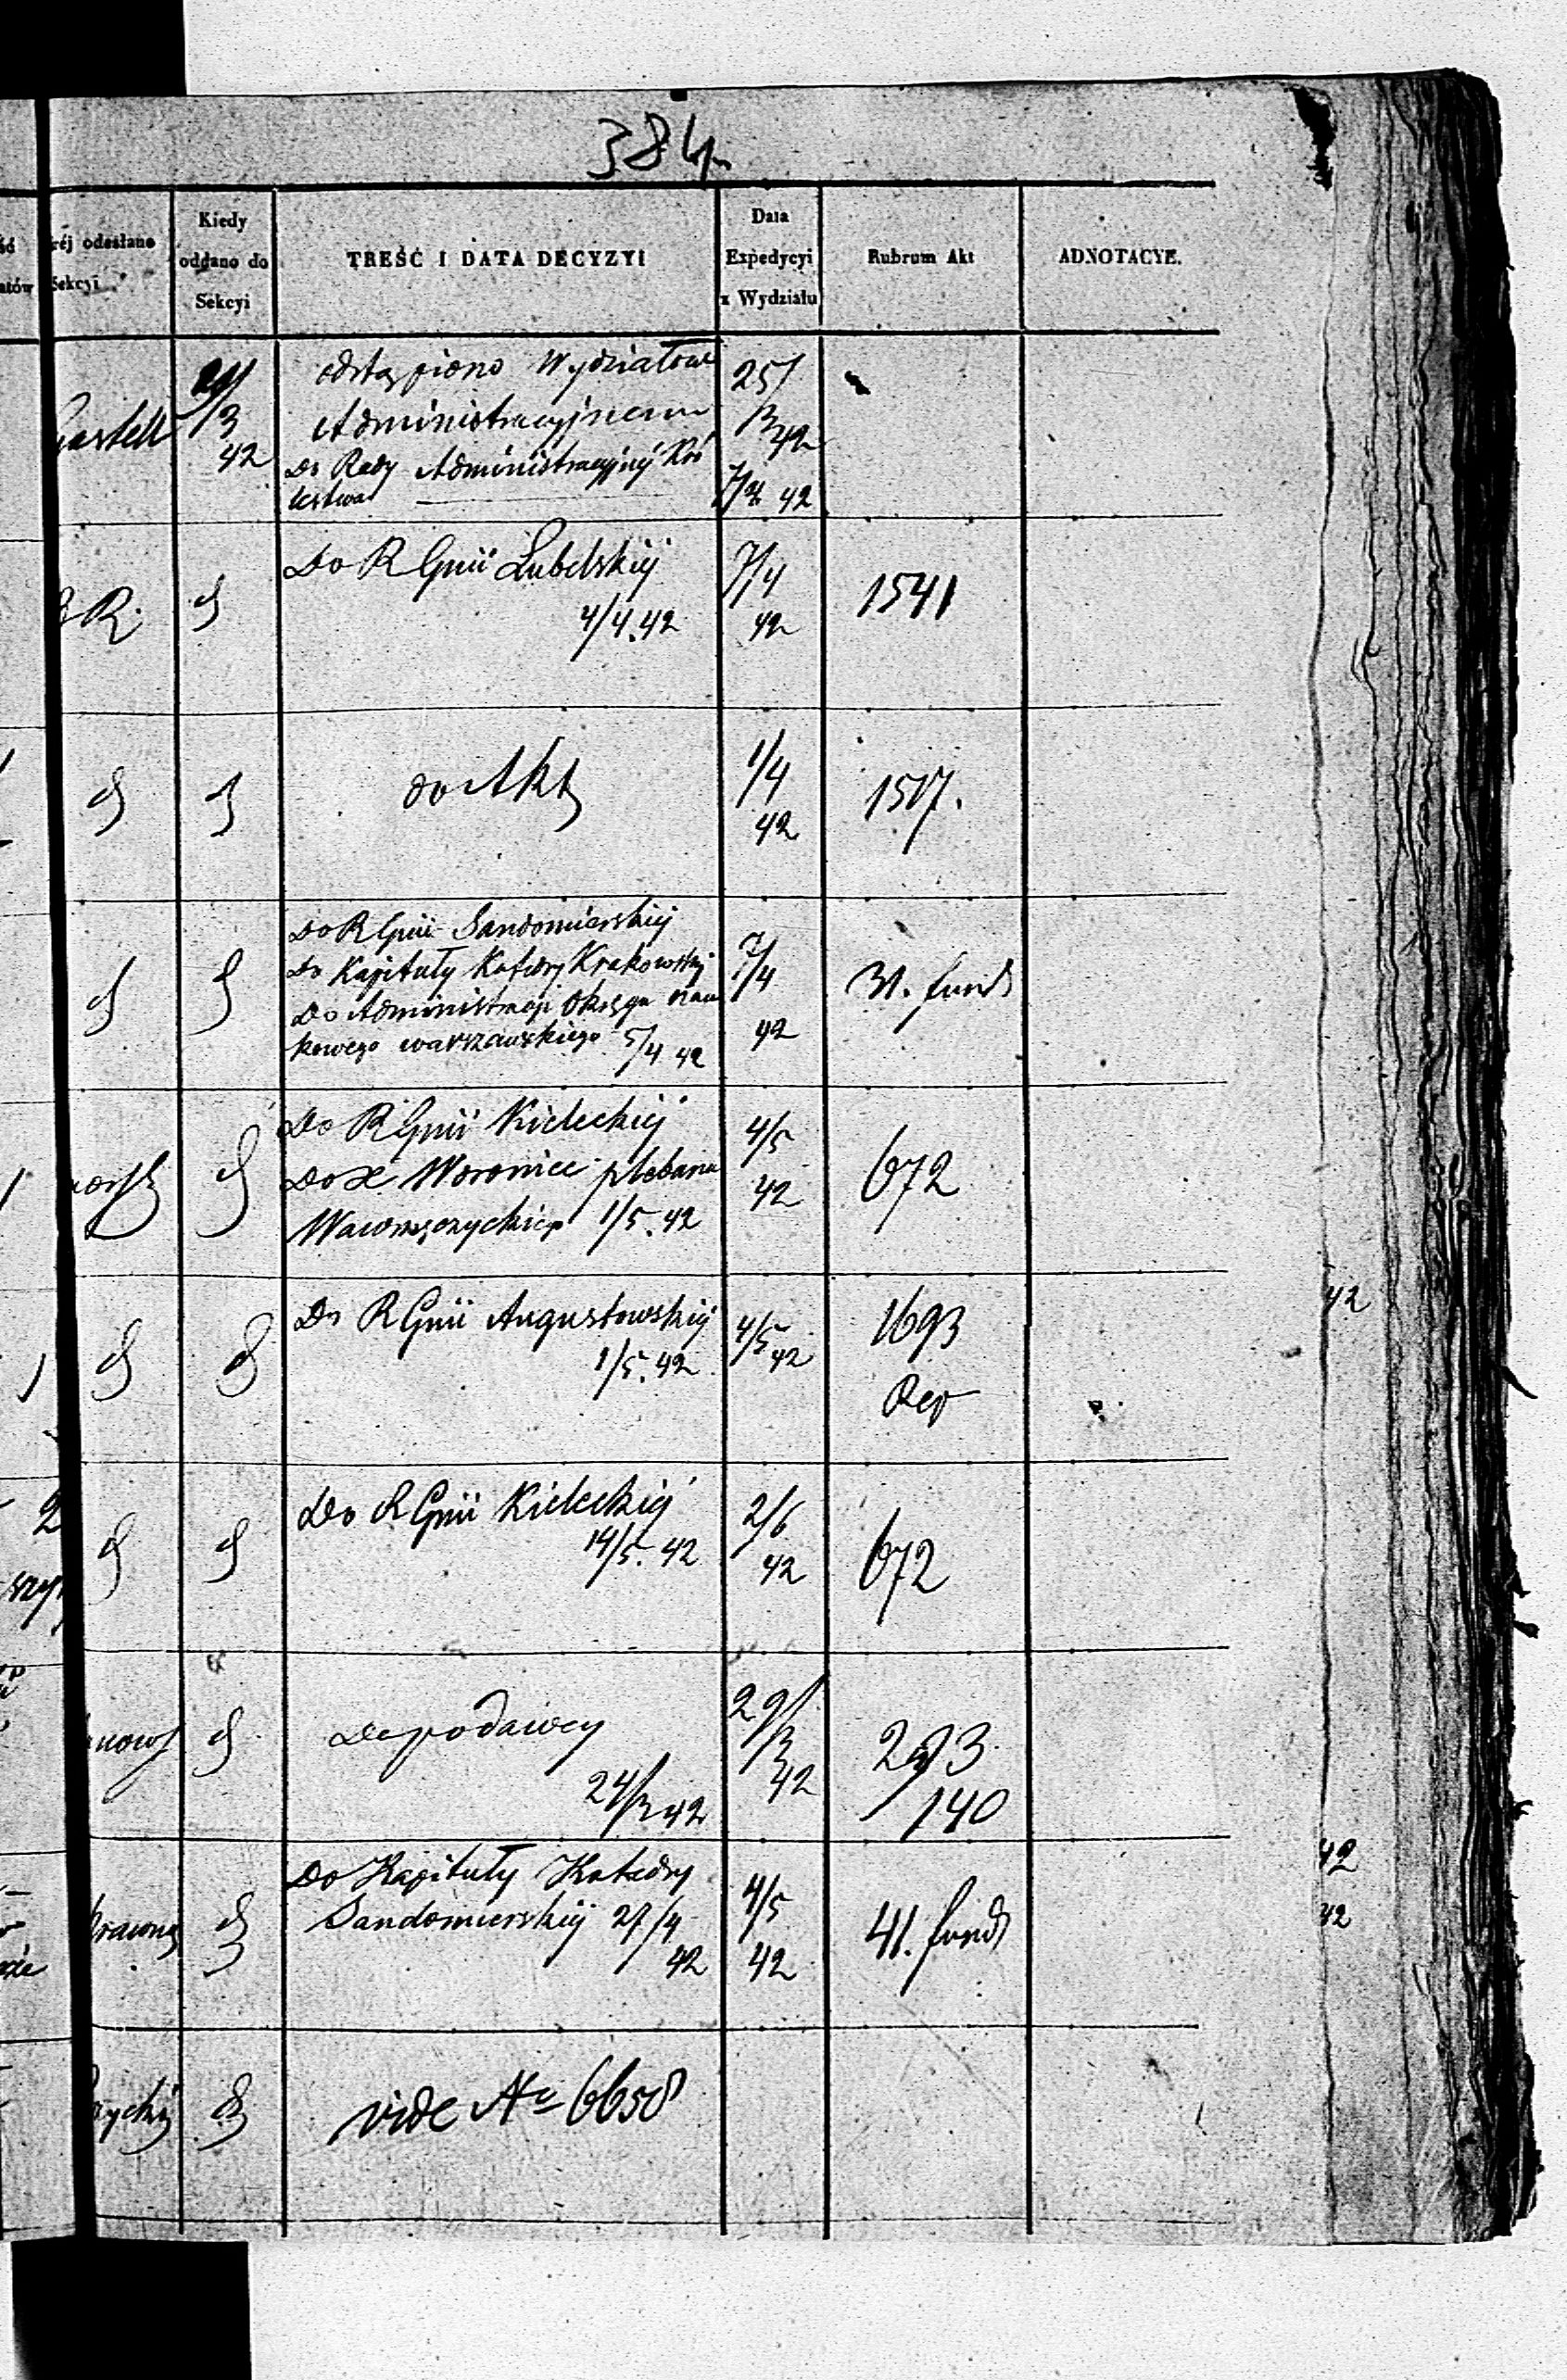 384
réj odesłano
Sekcyi
Kiedy
oddano do
Sekcyi
TREŚĆ I DATA DECYZYI
Data
Expedycyi
z Wydziału
Rubrum Akt
ADNOTACYE.
3
42
odstąpiono Wydziałowi
Administracyjnemu
Do Rady Administracyjnéj Kró
lestwa
25/
3
42
7/4 42
R.
Do R Gnii Lubelskiéj
4/4.42
7/4
42
1541
do Akt
1/4
42
1517.
Do R Gnii Sandomierskiéj
Do Kapituły Katedry Krakowskiéj
Do Administracji Okręgu nau
kowego warszawskiego 5/4 42
7/4
42
31. fund
Do R Gnii Kieleckiéj
Do X Woronicz plebana
1/5.42
4/5
42
672
Do R Gnii Augustowskiéj
1/5.42
4/5
42
1693
Rep
Do R Gnii Kieleckiéj
14/5. 42
2/6
42
672
Do podawcy
24/3 42
29/
3
42
140
Do Kapituły Katedry
Sandomierskiéj 27/4
42
4/5
42
41. fund
vide No 6658
42
42
42